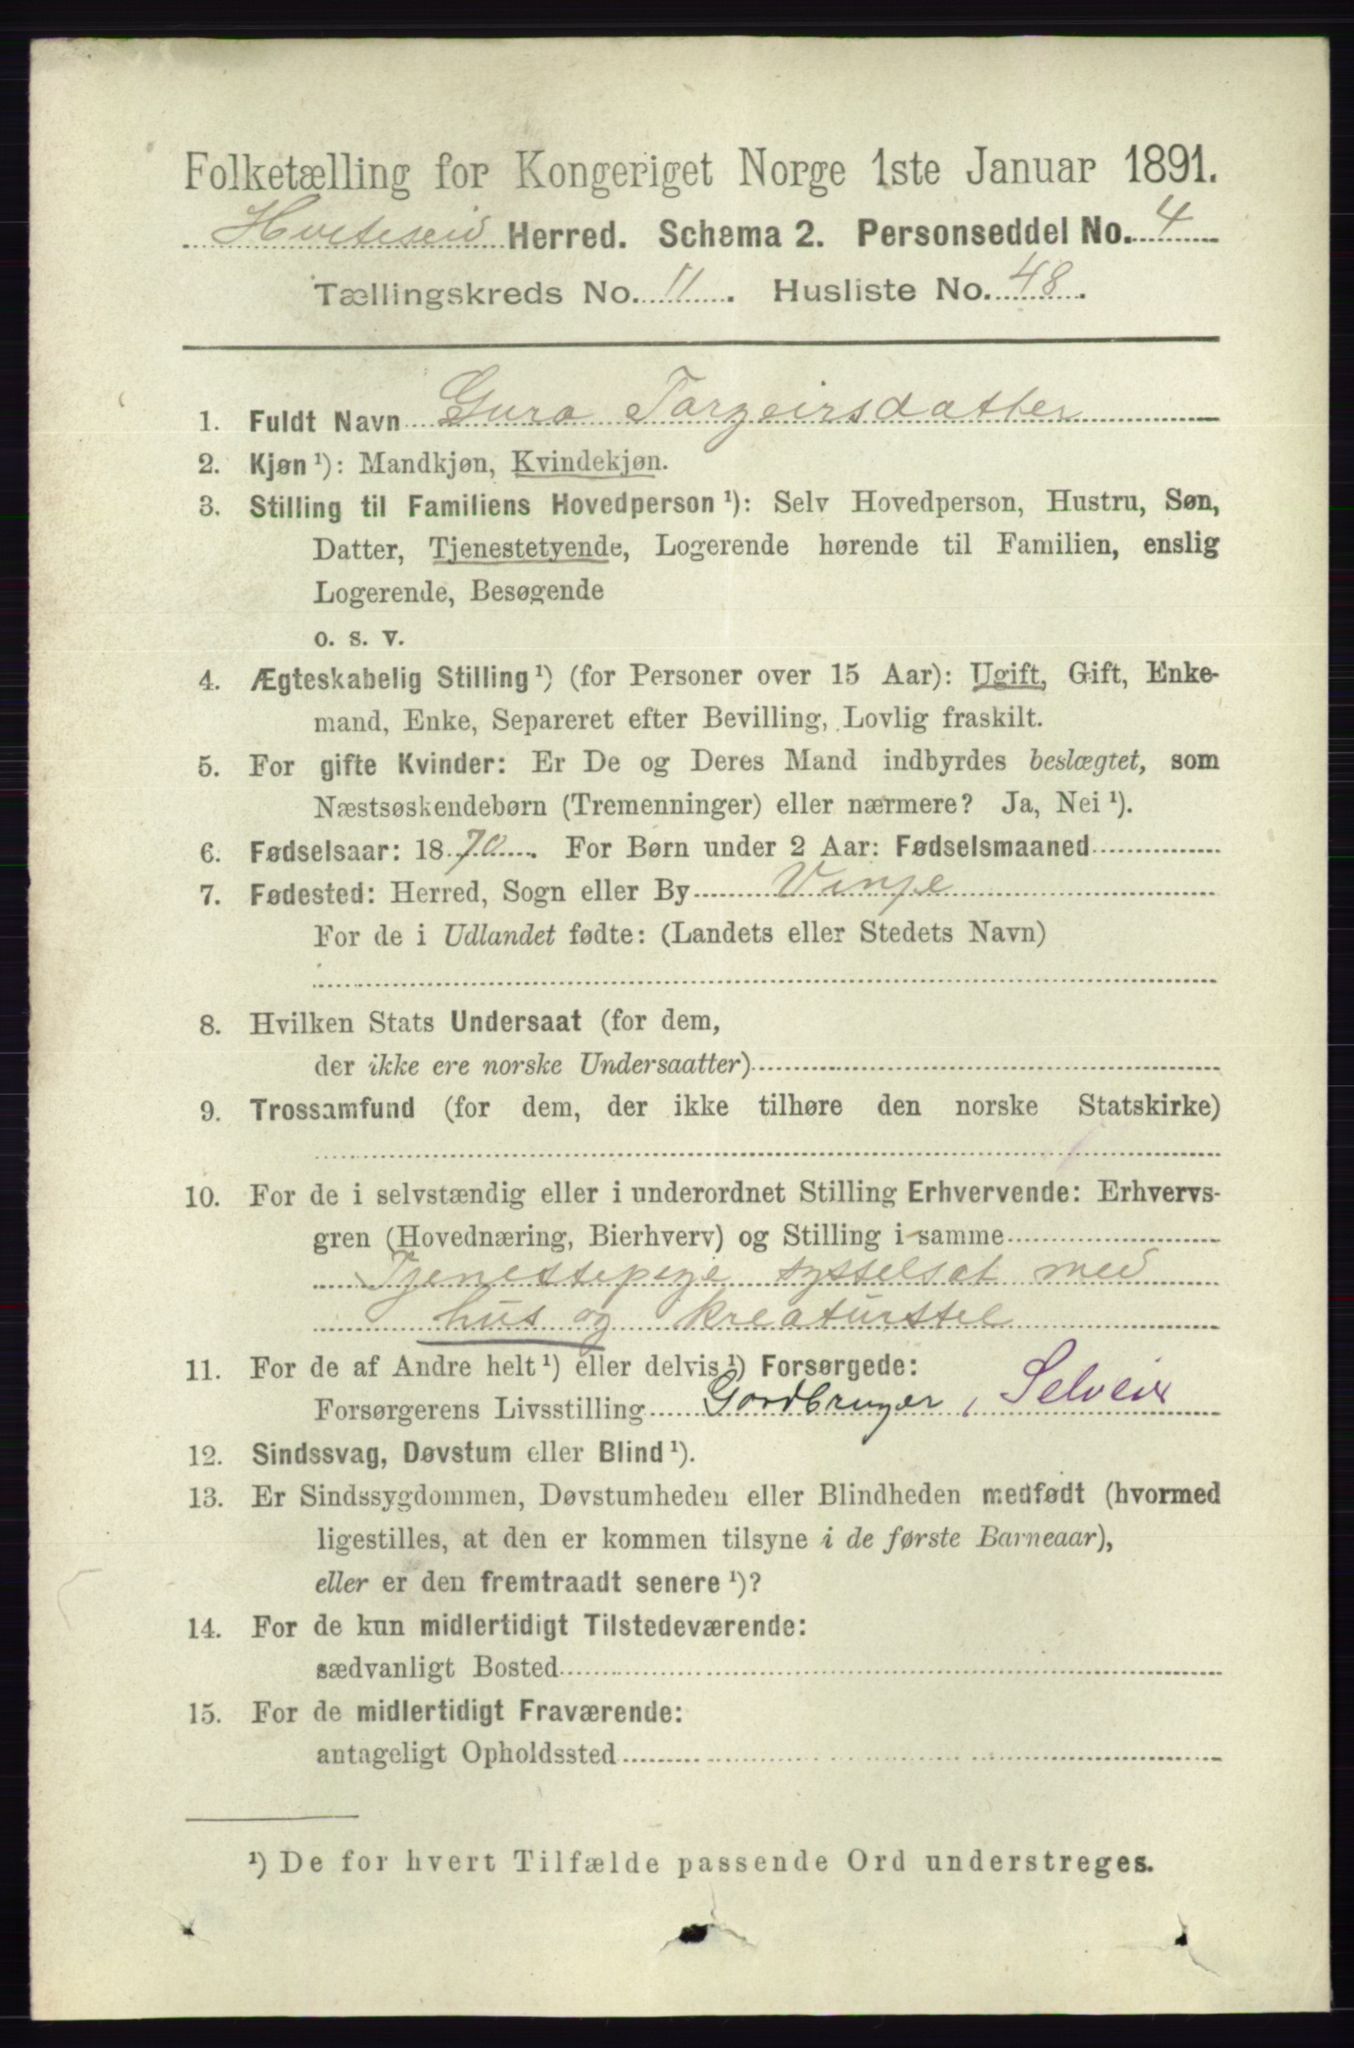 Folketælling for Kongeriget Norge 1ste Januar 1891.
Hviteseid Herred. Schema 2. Personseddel No. 4
Tællingskreds No. 11. Husliste No. 48.
1. Fuldt Navn Guro Torgeirsdatter
2. Kjøn ¹): Mandkjøn, Kvindekjøn.
3. Stilling til Familiens Hovedperson ¹): Selv Hovedperson, Hustru, Søn,
Datter, Tjenestetyende, Logerende hørende til Familien, enslig
Logerende, Besøgende
o. s. v.
4. Ægteskabelig Stilling ¹) (for Personer over 15 Aar): Ugift, Gift, Enke-
mand, Enke, Separeret efter Bevilling, Lovlig fraskilt.
5. For gifte Kvinder: Er De og Deres Mand indbyrdes beslægtet, som
Næstsøskendebørn (Tremenninger) eller nærmere? Ja, Nei ¹).
6. Fødselsaar: 1870. For Børn under 2 Aar: Fødselsmaaned
7. Fødested: Herred, Sogn eller By Vinje
For de i Udlandet fødte: (Landets eller Stedets Navn)
8. Hvilken Stats Undersaat (for dem,
der ikke ere norske Undersaatter)
9. Trossamfund (for dem, der ikke tilhøre den norske Statskirke)
10. For de i selvstændig eller i underordnet Stilling Erhvervende: Erhvervs-
gren (Hovednæring, Bierhverv) og Stilling i samme
Tjenestepige sysselsat med
hus og kreaturstel
11. For de af Andre helt ¹) eller delvis ¹) Forsørgede:
Forsørgerens Livsstilling Gardbruger, Selveier
12. Sindssvag, Døvstum eller Blind ¹).
13. Er Sindssygdommen, Døvstumheden eller Blindheden medfødt (hvormed
ligestilles, at den er kommen tilsyne i de første Barneaar),
eller er den fremtraadt senere ¹)?
14. For de kun midlertidigt Tilstedeværende:
sædvanligt Bosted
15. For de midlertidigt Fraværende:
antageligt Opholdssted
¹) De for hvert Tilfælde passende Ord understreges.